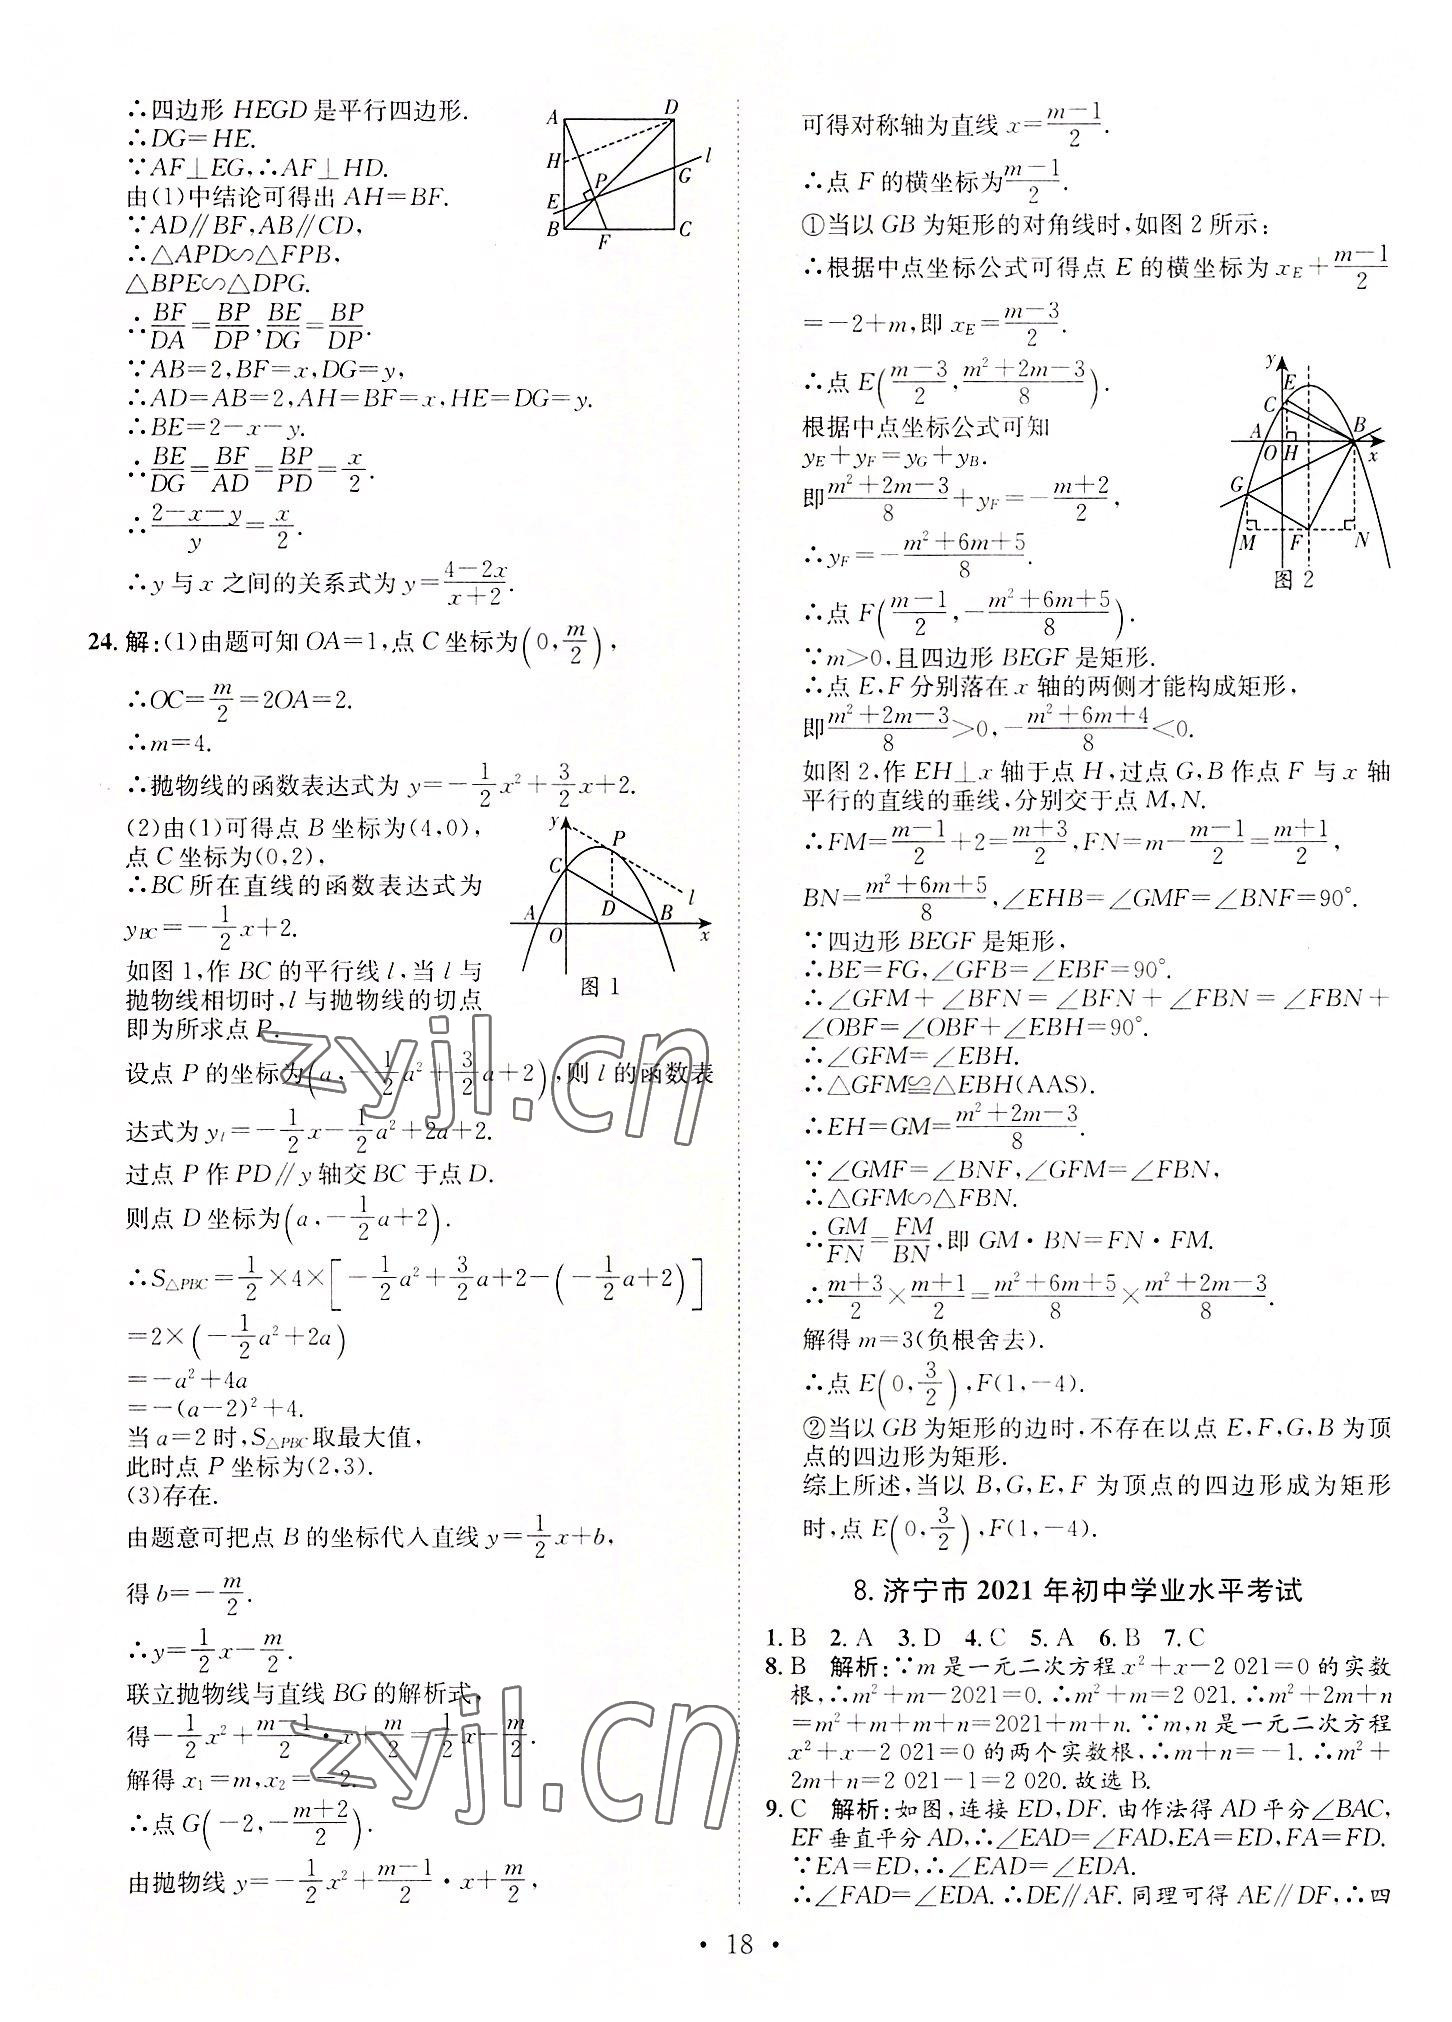 ∴四边形 HEGD 是平行四边形.
∴DG=HE.
∵AF⊥EG,∴AF⊥HD.
由(1)中结论可得出 AH=BF.
∵AD∥BF,AB∥CD,
∴△APD∽△FPB,
△BPE∽△DPG.
∴BF/DA=BP/DP,BE/DG=BP/DP.
∵AB=2,BF=x,DG=y,
∴AD=AB=2,AH=BF=x,HE=DG=y.
∴BE=2-x-y.
∴BE/DG=BF/AD=BP/PD=x/2.
∴(2-x-y)/y=x/2.
∴y 与 x 之间的关系式为 y=(4-2x)/(x+2).
A D H P l G E B F C
24. 解:(1)由题可知 OA=1,点 C 坐标为(0,m/2),
∴OC=m/2=2OA=2.
∴m=4.
∴抛物线的函数表达式为 y=-1/2x²+3/2x+2.
(2)由(1)可得点 B 坐标为(4,0),
点 C 坐标为(0,2),
∴BC 所在直线的函数表达式为
y_BC=-1/2x+2.
如图 1,作 BC 的平行线 l,当 l 与
抛物线相切时,l 与抛物线的切点
即为所求点 P.
y P C l D A B O x
图 1
设点 P 的坐标为(a,-1/2a²+3/2a+2),则 l 的函数表
达式为 y_l=-1/2x-1/2a²+2a+2.
过点 P 作 PD∥y 轴交 BC 于点 D.
则点 D 坐标为(a,-1/2a+2).
∴S△PBC=1/2×4×[-1/2a²+3/2a+2-(-1/2a+2)]
=2×(-1/2a²+2a)
=-a²+4a
=-(a-2)²+4.
当 a=2 时,S△PBC取最大值,
此时点 P 坐标为(2,3).
(3)存在.
由题意可把点 B 的坐标代入直线 y=1/2x+b,
得 b=-m/2.
∴y=1/2x-m/2.
联立抛物线与直线 BG 的解析式,
得-1/2x²+(m-1)/2·x+m/2=1/2x-m/2.
解得 x₁=m,x₂=-2.
∴点 G(-2,-(m+2)/2).
由抛物线 y=-1/2x²+(m-1)/2·x+m/2,
可得对称轴为直线 x=(m-1)/2.
∴点 F 的横坐标为(m-1)/2.
①当以 GB 为矩形的对角线时,如图 2 所示:
∴根据中点坐标公式可得点 E 的横坐标为 x_E+(m-1)/2
=-2+m,即 x_E=(m-3)/2.
∴点 E((m-3)/2,(m²+2m-3)/8).
根据中点坐标公式可知
y_E+y_F=y_G+y_B.
即(m²+2m-3)/8+y_F=-(m+2)/2,
∴y_F=-(m²+6m+5)/8.
∴点 F((m-1)/2,-(m²+6m+5)/8).
y E C A B O H x G M F N
图 2
∵m>0,且四边形 BEGF 是矩形.
∴点 E,F 分别落在 x 轴的两侧才能构成矩形,
即(m²+2m-3)/8>0,-(m²+6m+4)/8<0.
如图 2,作 EH⊥x 轴于点 H,过点 G,B 作点 F 与 x 轴
平行的直线的垂线,分别交于点 M,N.
∴FM=(m-1)/2+2=(m+3)/2,FN=m-(m-1)/2=(m+1)/2,
BN=(m²+6m+5)/8,∠EHB=∠GMF=∠BNF=90°.
∵四边形 BEGF 是矩形,
∴BE=FG,∠GFB=∠EBF=90°.
∴∠GFM+∠BFN=∠BFN+∠FBN=∠FBN+
∠OBF=∠OBF+∠EBH=90°.
∴∠GFM=∠EBH.
∴△GFM≌△EBH(AAS).
∴EH=GM=(m²+2m-3)/8.
∵∠GMF=∠BNF,∠GFM=∠FBN,
∴△GFM∽△FBN.
∴GM/FN=FM/BN,即 GM·BN=FN·FM.
∴(m+3)/2×(m+1)/2=(m²+6m+5)/8×(m²+2m-3)/8.
解得 m=3(负根舍去).
∴点 E(0,3/2),F(1,-4).
②当以 GB 为矩形的边时,不存在以点 E,F,G,B 为顶
点的四边形为矩形.
综上所述,当以 B,G,E,F 为顶点的四边形成为矩形
时,点 E(0,3/2),F(1,-4).
8. 济宁市 2021 年初中学业水平考试
1. B 2. A 3. D 4. C 5. A 6. B 7. C
8. B 解析:∵m 是一元二次方程 x²+x-2 021=0 的实数
根,∴m²+m-2021=0.∴m²+m=2 021.∴m²+2m+n
=m²+m+m+n=2021+m+n.∵m,n 是一元二次方程
x²+x-2 021=0 的两个实数根,∴m+n=-1.∴m²+
2m+n=2 021-1=2 020.故选 B.
9. C 解析:如图,连接 ED,DF.由作法得 AD 平分∠BAC,
EF 垂直平分 AD,∴∠EAD=∠FAD,EA=ED,FA=FD.
∵EA=ED,∴∠EAD=∠EDA.
∴∠FAD=∠EDA.∴DE∥AF.同理可得 AE∥DF,∴四
· 18 ·
zyjl.cn
zyjl.cn